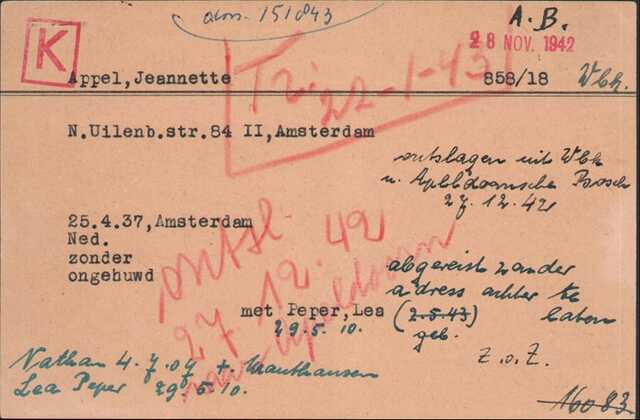 adm. 151843
A.B.
28 NOV. 1942
K
Appel,Jeannette 858/18 Wbk.
Tr: 22-1-43
N.Uilenb.str.84 II,Amsterdam
ontslagen uit Wbk
n. Apeldoornsche Bosch
27.12.42
25.4.37,Amsterdam
Ned.
zonder
ongehuwd
ontsl.
27 12.42
naar Apeldoorn
abgereist zonder
adress achter te
laten
met Peper,Lea (2.5.43)
29.5.10. geb.
z.o.z.
Nathan 4.7.07 + Mauthausen
Lea Peper 29.5.10.
16083